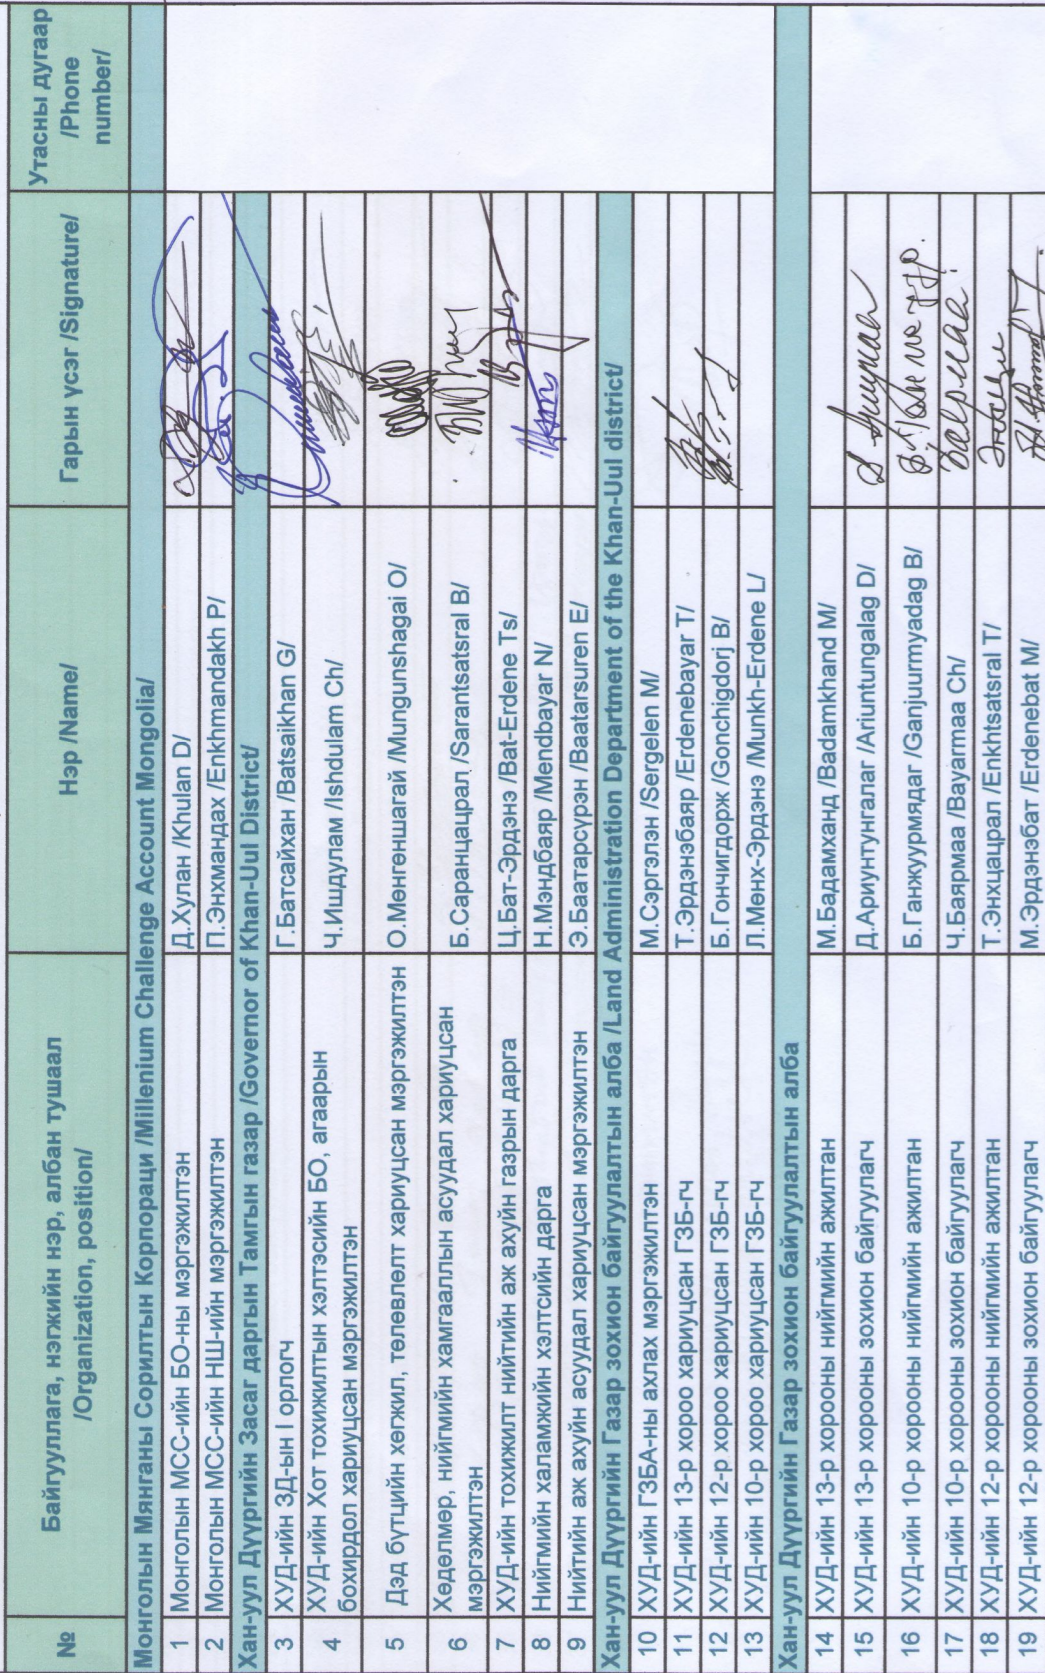 № Байгууллага, нэгжийн нэр, албан тушаал Нэр /Name/ Гарын үсэг /Signature/ Утасны дугаар
/Organization, position/ /Phone
number/
Монголын Мянганы Сорилтын Корпораци /Millenium Challenge Account Mongolia/
1 Монголын МСС-ийн БО-ны мэргэжилтэн Д.Хулан /Khulan D/
2 Монголын МСС-ийн НШ-ийн мэргэжилтэн П.Энхмандах /Enkhmandakh P/
Хан-уул Дүүргийн Засаг даргын Тамгын газар /Governor of Khan-Uul District/
3 ХУД-ийн ЗД-ын I орлогч Г.Батсайхан /Batsaikhan G/
4 ХУД-ийн Хот тохижилтын хэлтэсийн БО, агаарын Ч.Ишдулам /Ishdulam Ch/
бохирдол хариуцсан мэргэжилтэн
5 Дэд бүтцийн хөгжил, төлөвлөлт хариуцсан мэргэжилтэн О.Мөнгөншагай /Mungunshagai O/
6 Хөдөлмөр, нийгмийн хамгааллын асуудал хариуцсан Б.Саранцацрал /Sarantsatsral B/
мэргэжилтэн
7 ХУД-ийн тохижилт нийтийн аж ахуйн газрын дарга Ц.Бат-Эрдэнэ /Bat-Erdene Ts/
8 Нийгмийн халамжийн хэлтсийн дарга Н.Мэндбаяр /Mendbayar N/
9 Нийтийн аж ахуйн асуудал хариуцсан мэргэжилтэн Э.Баатарсүрэн /Baatarsuren E/
Хан-уул Дүүргийн Газар зохион байгуулалтын алба /Land Administration Department of the Khan-Uul district/
10 ХУД-ийн ГЗБА-ны ахлах мэргэжилтэн М.Сэргэлэн /Sergelen M/
11 ХУД-ийн 13-р хороо хариуцсан ГЗБ-гч Т.Эрдэнэбаяр /Erdenebayar T/
12 ХУД-ийн 12-р хороо хариуцсан ГЗБ-гч Б.Гончигдорж /Gonchigdorj B/
13 ХУД-ийн 10-р хороо хариуцсан ГЗБ-гч Л.Мөнх-Эрдэнэ /Munkh-Erdene L/
Хан-уул Дүүргийн Газар зохион байгуулалтын алба
14 ХУД-ийн 13-р хорооны нийгмийн ажилтан М.Бадамханд /Badamkhand M/
15 ХУД-ийн 13-р хорооны зохион байгуулагч Д.Ариунтунгалаг /Ariuntungalag D/
16 ХУД-ийн 10-р хорооны нийгмийн ажилтан Б.Ганжуурмядаг /Ganjuurmyadag B/
17 ХУД-ийн 10-р хорооны зохион байгуулагч Ч.Баярмаа /Bayarmaa Ch/ Баярмаа
18 ХУД-ийн 12-р хорооны нийгмийн ажилтан Т.Энхцацрал /Enkhtsatsral T/
19 ХУД-ийн 12-р хорооны зохион байгуулагч М.Эрдэнэбат /Erdenebat M/